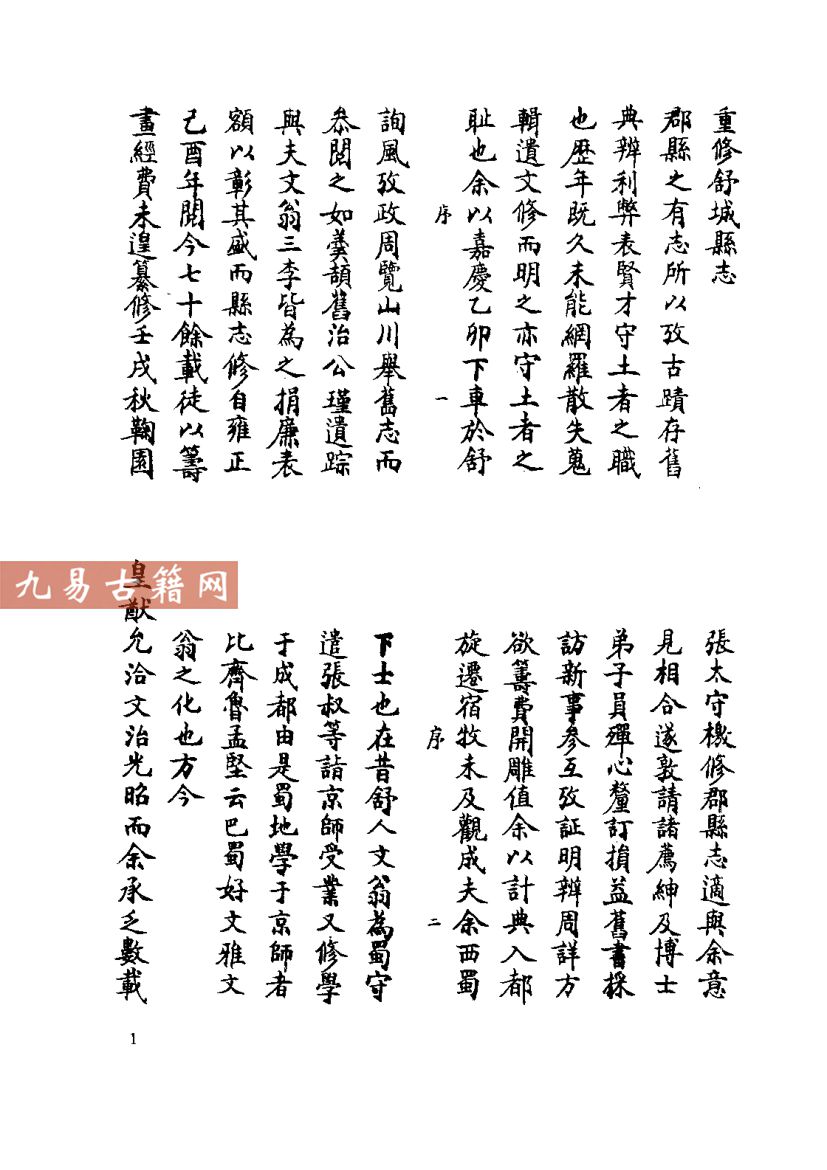 重修舒城縣志
郡縣之有志所以攷古蹟存舊
典辨利弊表賢才守土者之職
也歷年既久未能網羅散失蒐
輯遺文修而明之亦守土者之
耻也余以嘉慶乙卯下車於舒
序 一
詢風攷政周覽山川舉舊志而
叅閱之如羹頡舊治公瑾遺踪
與夫文翁三李皆為之捐廉表
額以彰其盛而縣志修自雍正
己酉年閱今七十餘載徒以籌
畫經費未遑纂修壬戌秋鞠園
張太守檄修郡縣志適與余意
見相合遂敦請諸薦紳及博士
弟子員殫心釐訂損益舊書採
訪新事參互攷証明辨周詳方
欲籌費開雕值余以計典入都
旋遷宿牧未及觀成夫余西蜀
序 二
下士也在昔舒人文翁為蜀守
遣張叔等詣京師受業又修學
于成都由是蜀地學于京師者
比齊魯孟堅云巴蜀好文雅文
翁之化也方今
皇猷允洽文治光昭而余承乏數載
1
九易古籍网